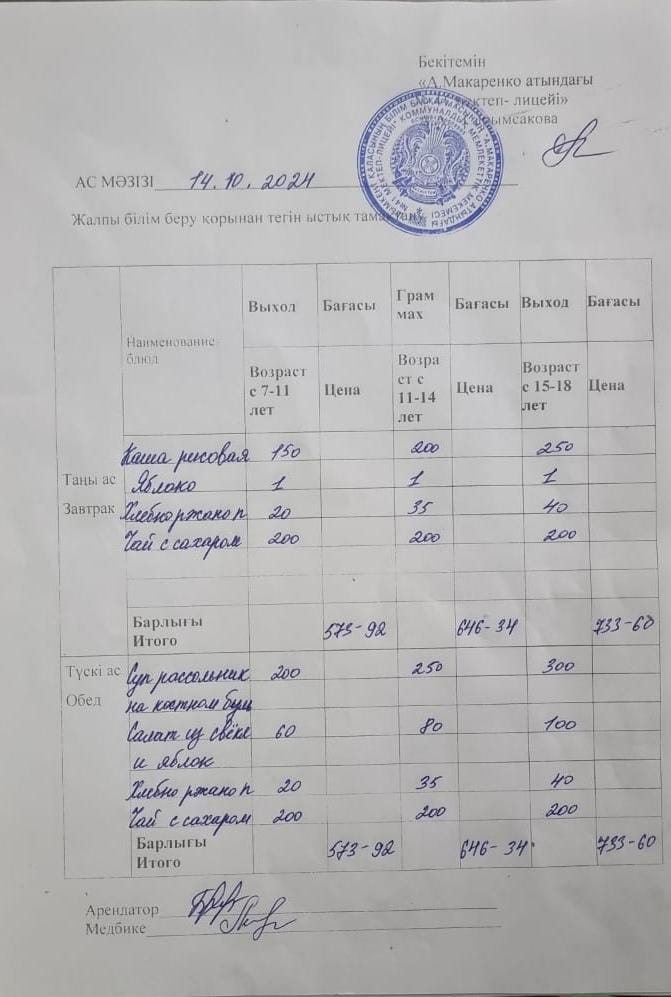 Бекітемін
«А.Макаренко атындағы
мектеп- лицейі»
АС МӘЗІЗІ 14.10.2024
Жалпы білім беру қорынан тегін ыстық
Наименование блюд Выход Бағасы Грам мах Бағасы Выход Бағасы
Возраст с 7-11 лет Цена Возра ст с 11-14 лет Цена Возраст с 15-18 лет Цена
Таңы ас
Завтрак
Каша рисовая 150 200 250
Яблоко 1 1 1
Хлебно ржано п 20 35 40
Чай с сахаром 200 200 200
Барлығы Итого 573-92 646-34 733-60
Түскі ас
Обед
Суп рассольник 200 250 300
на костном бул
Салат из свёкл 60 80 100
и яблок
Хлебно ржано п 20 35 40
Чай с сахаром 200 200 200
Барлығы Итого 573-92 646-34 733-60
Арендатор
Медбике